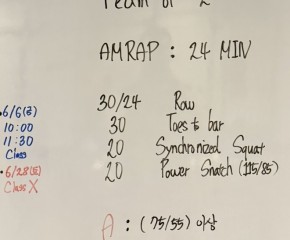 Team of 2
AMRAP : 24 MIN
30/24 Row
30 Toes to bar
20 Synchronized Squat
20 Power Snatch (115/85)
A : (75/55) 이상
•6/6(금)
10:00
11:30
Class
•6/28(토)
Class X